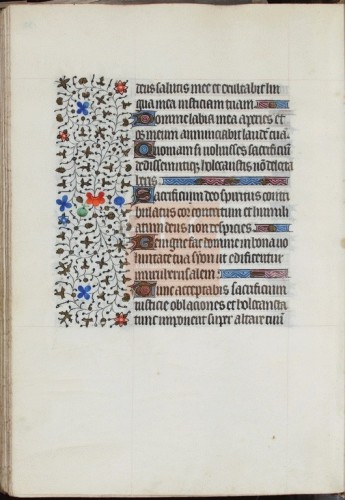 deus salutis mee et exultabit lin
gua mea iusticiam tuam.
Domine labia mea aperies et
os meum annunciabit laudē tuā.
Quoniam si voluisses sacrificiū
dedissem utiqz holocaustis nō delecta
beris.
Sacrificium deo spiritus contri
bulatus cor contritum et humili
atum deus non despicies.
Benigne fac domine in bona vo
luntate tua syon ut edificentur
muri iherusalem.
Tunc acceptabis sacrificium
iusticie oblaciones et holocausta
tunc imponent super altare tuū